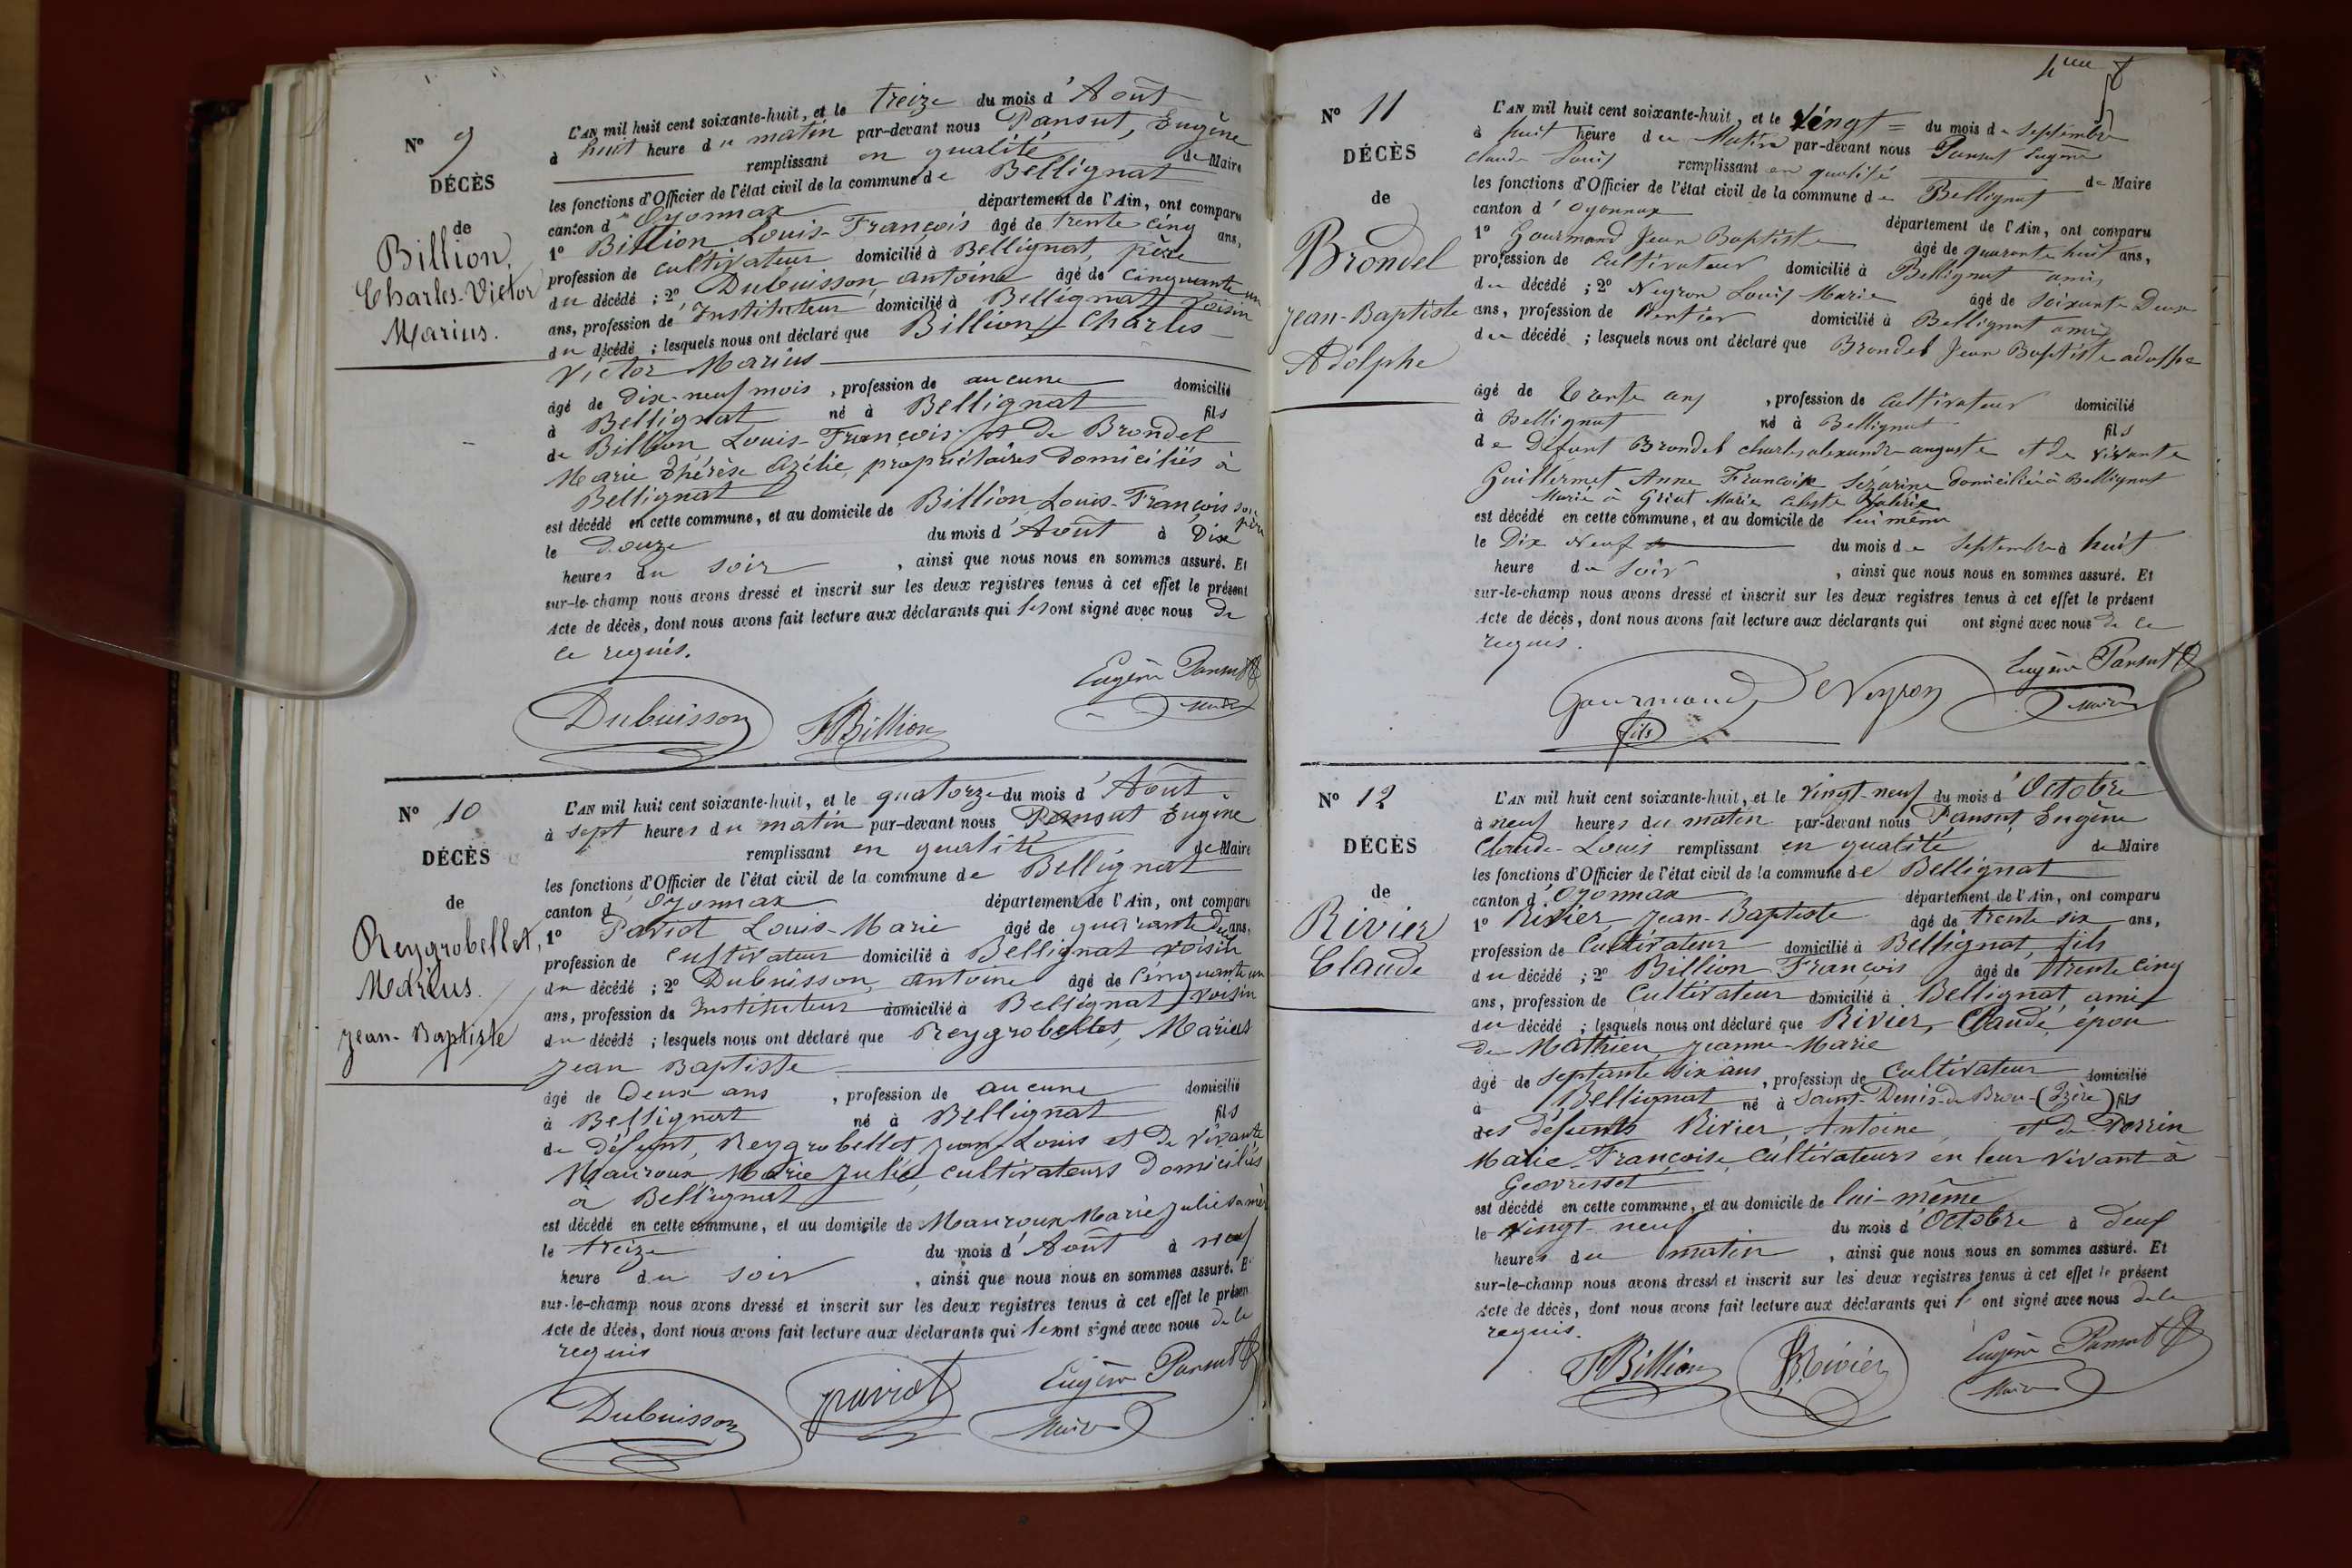 N° 9
DÉCÈS
de
Billion,
Charles-Victor
Marius.
L'AN mil huit cent soixante-huit, et le treize du mois d'Août
à huit heure du matin par-devant nous Pansut, Eugène
remplissant en qualité de Maire
les fonctions d'Officier de l'état civil de la commune de Bellignat
canton d'Oyonnax département de l'Ain, ont comparu
1° Billion Louis-François âgé de trente cinq ans,
profession de cultivateur domicilié à Bellignat, père
du décédé ; 2° Dubuisson, antoine âgé de cinquante un
ans, profession de Instituteur domicilié à Bellignat voisin
du décédé ; lesquels nous ont déclaré que Billion, Charles
Victor Marius
âgé de dix-neuf mois, profession de aucune domicilié
à Bellignat né à Bellignat fils
de Billion Louis-François et de Brondel
Marie Thérèse Azélie, propriétaires domiciliés à
Bellignat
est décédé en cette commune, et au domicile de Billion Louis-François son père
le Douze du mois d'Août à Dix
heures du soir, ainsi que nous nous en sommes assuré. Et
sur-le-champ nous avons dressé et inscrit sur les deux registres tenus à cet effet le présent
Acte de décès, dont nous avons fait lecture aux déclarants qui les ont signé avec nous de
ce requis.
Eugène Pansut
Maire
Dubuisson
Billion
N° 10
DÉCÈS
de
Reygrobellet,
Marius
Jean-Baptiste
L'AN mil huit cent soixante-huit, et le quatorze du mois d'Août
à sept heures du matin par-devant nous Pansut Eugène
remplissant en qualité de Maire
les fonctions d'Officier de l'état civil de la commune de Bellignat
canton d'Oyonnax département de l'Ain, ont comparu
1° Paviot Louis-Marie âgé de quarante deux ans,
profession de cultivateur domicilié à Bellignat voisin
du décédé ; 2° Dubuisson, antoine âgé de cinquante un
ans, profession de Instituteur domicilié à Bellignat, voisin
du décédé ; lesquels nous ont déclaré que Reygrobellet, Marius
Jean Baptiste
âgé de Deux ans, profession de aucune domicilié
à Bellignat né à Bellignat fils
de défunt, Reygrobellet Jean Louis et de vivante
Mauroux, Marie Julie, cultivateurs domiciliés
à Bellignat
est décédé en cette commune, et au domicile de Mauroux Marie Julie sa mère
le treize du mois d'Août à neuf
heure du soir, ainsi que nous nous en sommes assuré. Et
sur-le-champ nous avons dressé et inscrit sur les deux registres tenus à cet effet le présent
Acte de décès, dont nous avons fait lecture aux déclarants qui les ont signé avec nous de ce
requis
Eugène Pansut
Maire
Dubuisson
paviot
N° 11
DÉCÈS
de
Brondel
Jean-Baptiste
Adolphe
L'AN mil huit cent soixante-huit, et le Vingt = du mois de septembre
à huit heure du Matin par-devant nous Pansut Eugène
Claude Louis remplissant en qualité de Maire
les fonctions d'Officier de l'état civil de la commune de Bellignat
canton d'Oyonnax département de l'Ain, ont comparu
1° Gourmand Jean Baptiste âgé de quarante huit ans,
profession de cultivateur domicilié à Bellignat ami
du décédé ; 2° Neyron Louis Marie âgé de soixante Deux
ans, profession de Rentier domicilié à Bellignat ami
du décédé ; lesquels nous ont déclaré que Brondel Jean Baptiste adolphe
âgé de Trente ans, profession de cultivateur domicilié
à Bellignat né à Bellignat fils
de Défunt Brondel charles alexandre auguste et de vivante
Guillermet Anne Françoise Sézarine domiciliée à Bellignat
Marié à Griat Marie Celeste Valerie
est décédé en cette commune, et au domicile de lui même
le Dix Neuf du mois de septembre à huit
heure du soir, ainsi que nous nous en sommes assuré. Et
sur-le-champ nous avons dressé et inscrit sur les deux registres tenus à cet effet le présent
Acte de décès, dont nous avons fait lecture aux déclarants qui ont signé avec nous de ce
requis.
Eugène Pansut
Maire
Gourmand
fils
Neyron
N° 12
DÉCÈS
de
Rivier
Claude
L'AN mil huit cent soixante-huit, et le vingt-neuf du mois d'Octobre
à neuf heures du matin par-devant nous Pansut, Eugène
Claude-Louis remplissant en qualité de Maire
les fonctions d'Officier de l'état civil de la commune de Bellignat
canton d'Oyonnax département de l'Ain, ont comparu
1° Rivier, Jean-Baptiste âgé de trente six ans,
profession de Cultivateur domicilié à Bellignat, fils
du décédé ; 2° Billion François âgé de trente cinq
ans, profession de Cultivateur domicilié à Bellignat, ami
du décédé ; lesquels nous ont déclaré que Rivier, Claude, épou
de Mathieu Jeanne-Marie
âgé de septante six ans, profession de Cultivateur domicilié
à Bellignat né à Saint-Denis-de Brou-(Izère) fils
des défunts Rivier, Antoine, et de Perrin
Marie-Françoise Cultivateurs en leur vivant à
Geovresset
est décédé en cette commune, et au domicile de lui-même
le vingt-neuf du mois d'Octobre à deux
heures du matin, ainsi que nous nous en sommes assuré. Et
sur-le-champ nous avons dressé et inscrit sur les deux registres tenus à cet effet le présent
Acte de décès, dont nous avons fait lecture aux déclarants qui l'ont signé avec nous de ce
requis.
Billion
Rivier
Eugène Pansut
Maire